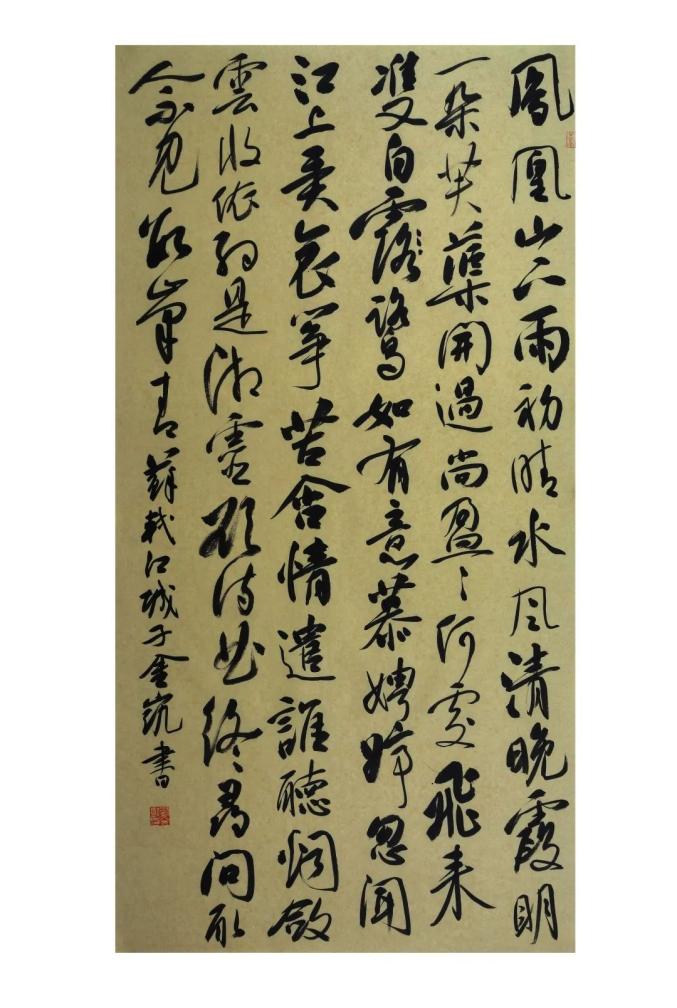 鳳凰山下雨初晴水风清晚霞明
一朵芙蕖開過尚盈盈何處飛來
雙白露鷺如有意慕娉婷忽聞
江上弄哀箏苦含情遣誰聽烟斂
雲收依約是湘靈欲待曲終尋問取
人不見數峯青蘇軾江城子金書